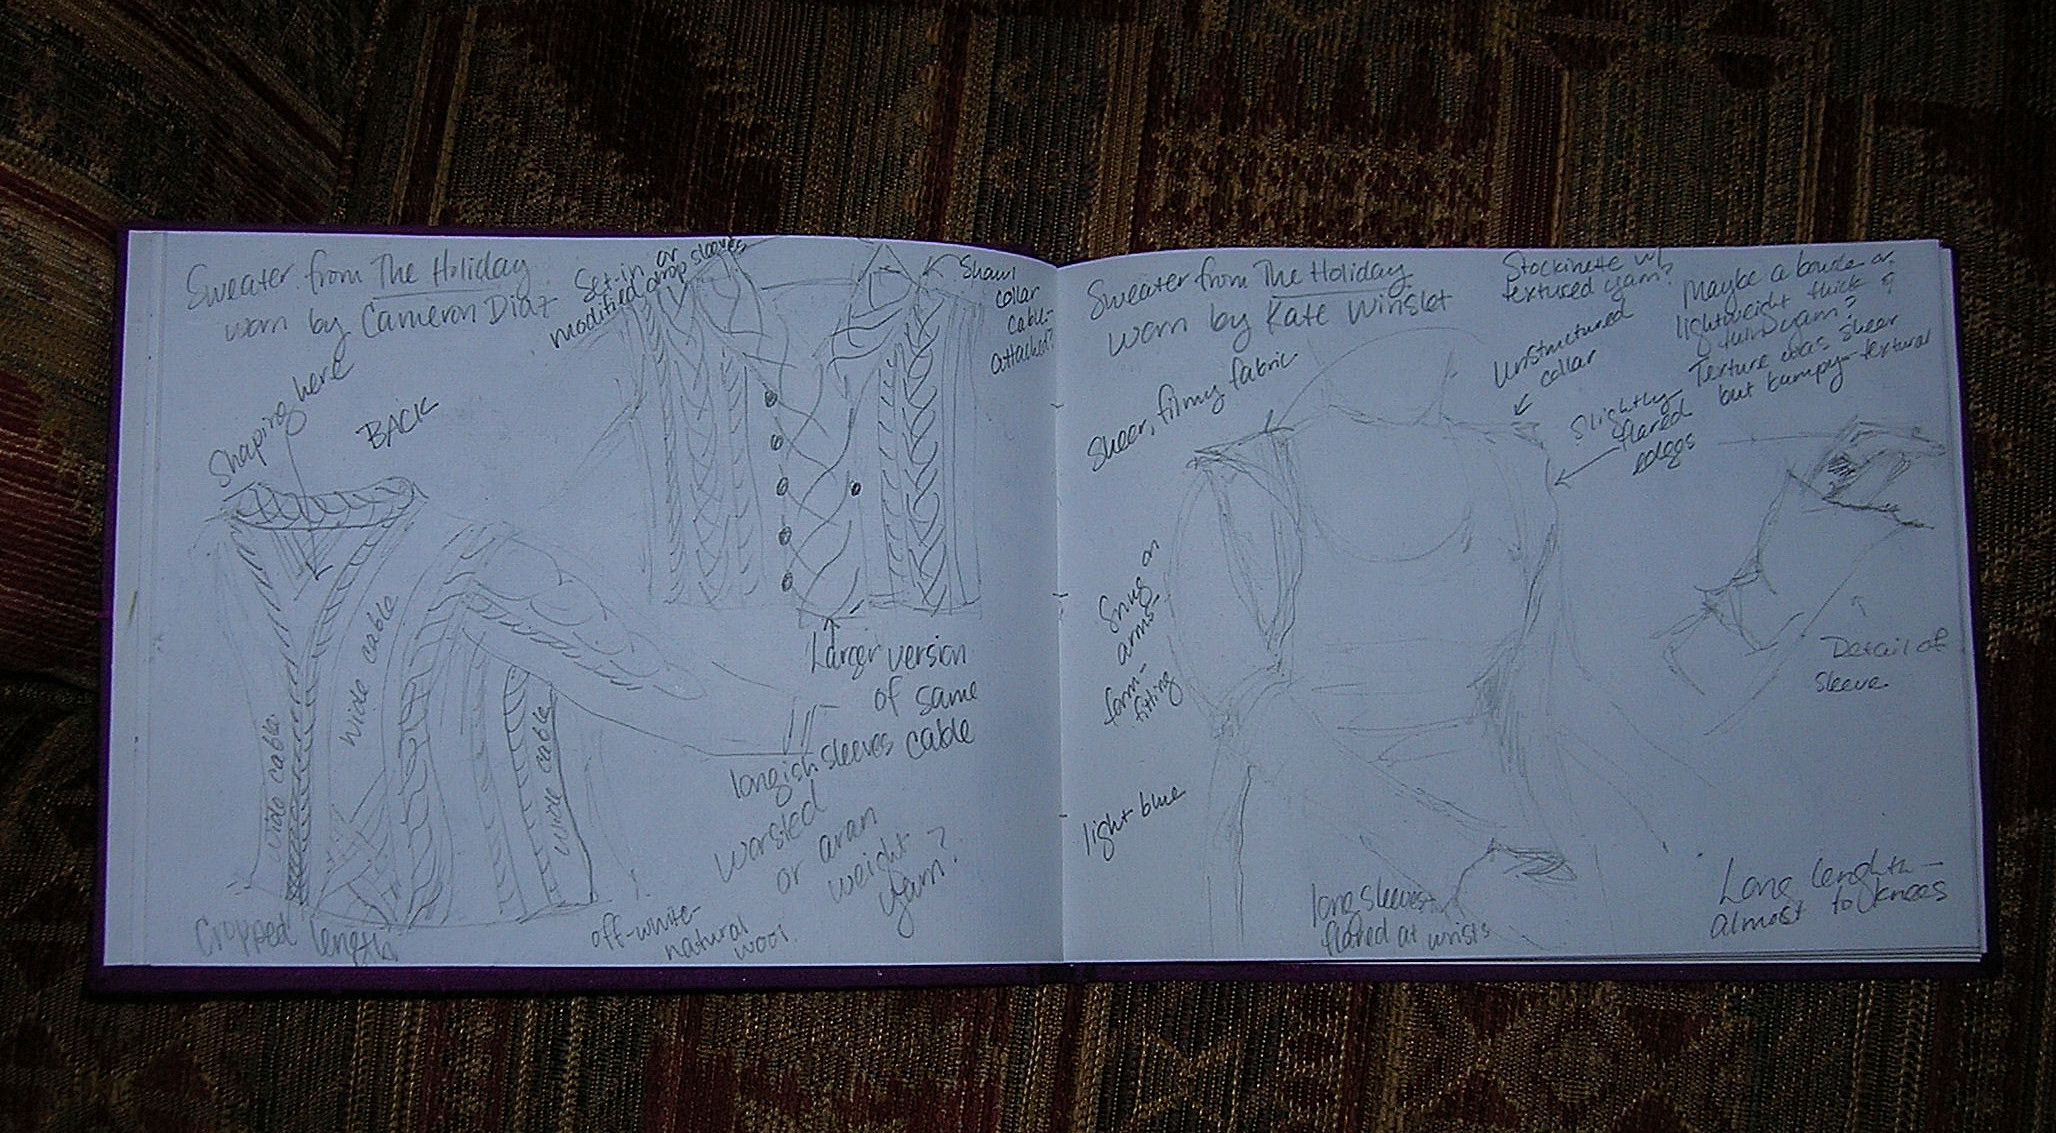 Sweater from The Holiday
worn by Cameron Diaz
Set-in or
modified drop sleeves
Shawl
collar
cable-
attached?
Shaping here
BACK
wide cable
wide cable
wide cable
Larger version
of same
cable
longish sleeves
worsted
or aran
weight
yarn?
Cropped length
off-white-
natural
wool.
Sweater from The Holiday
worn by Kate Winslet
Stockinette w/
textured yarn?
Maybe a boucle or
lightweight thick &
thin yarn?
Texture was sheer
but bumpy-textural
Unstructured
collar
Slightly
flared
edges
Sheer, filmy fabric
Snug on
arms-
form-
fitting
light blue
Detail of
sleeve
long sleeves
flared at wrists
Long length-
almost to knees